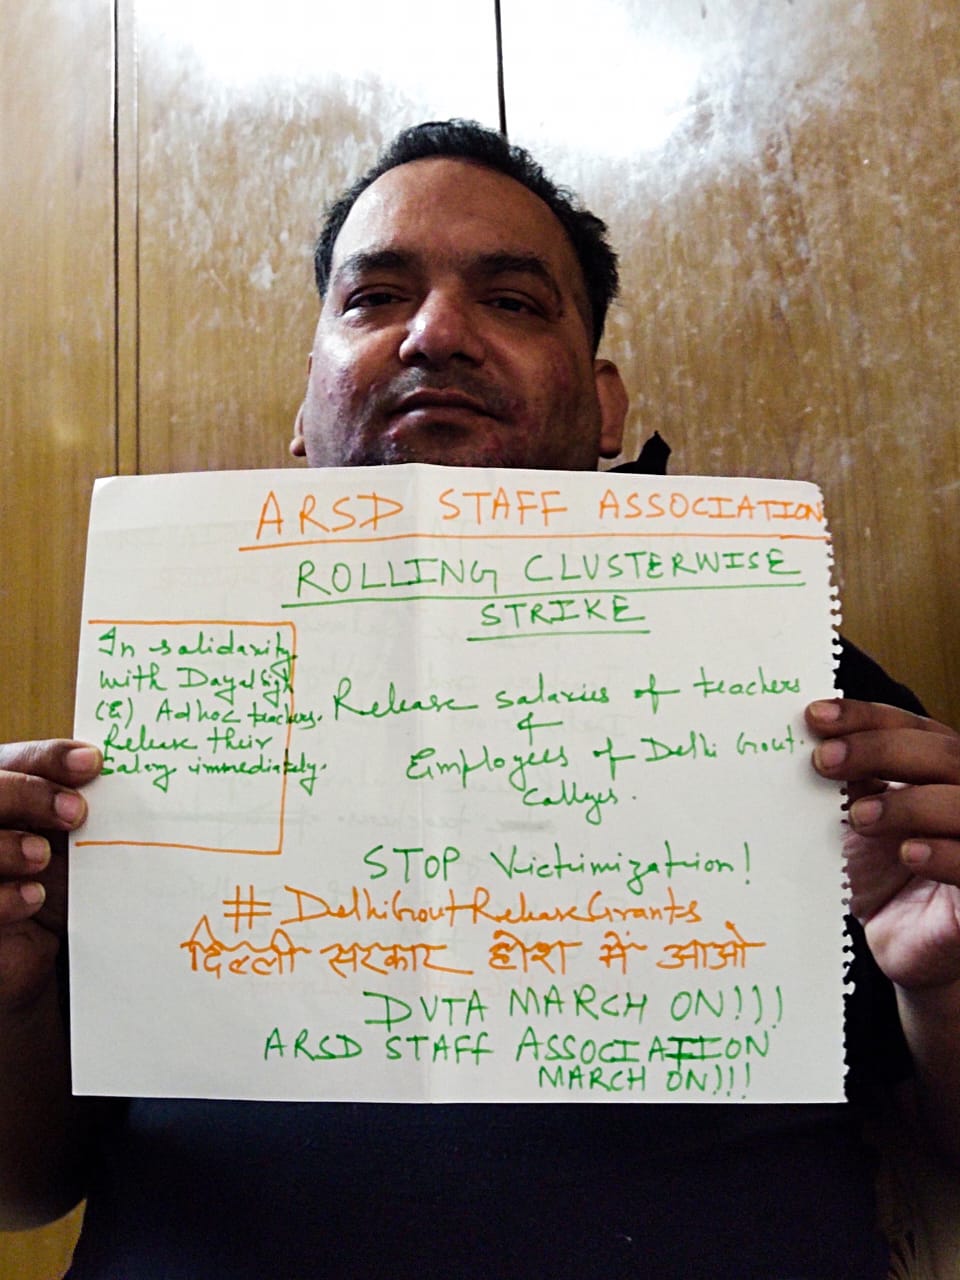 ARSD STAFF ASSOCIATION
ROLLING CLUSTERWISE
STRIKE
In solidarity
with Dayal Singh
(E) Adhoc teachers.
Release their
Salary immediately.
Release salaries of teachers
&
Employees of Delhi Govt.
Colleges.
STOP Victimization!
#DelhiGovtReleaseGrants
दिल्ली सरकार होश में आओ
DUTA MARCH ON!!!
ARSD STAFF ASSOCIATION
MARCH ON!!!